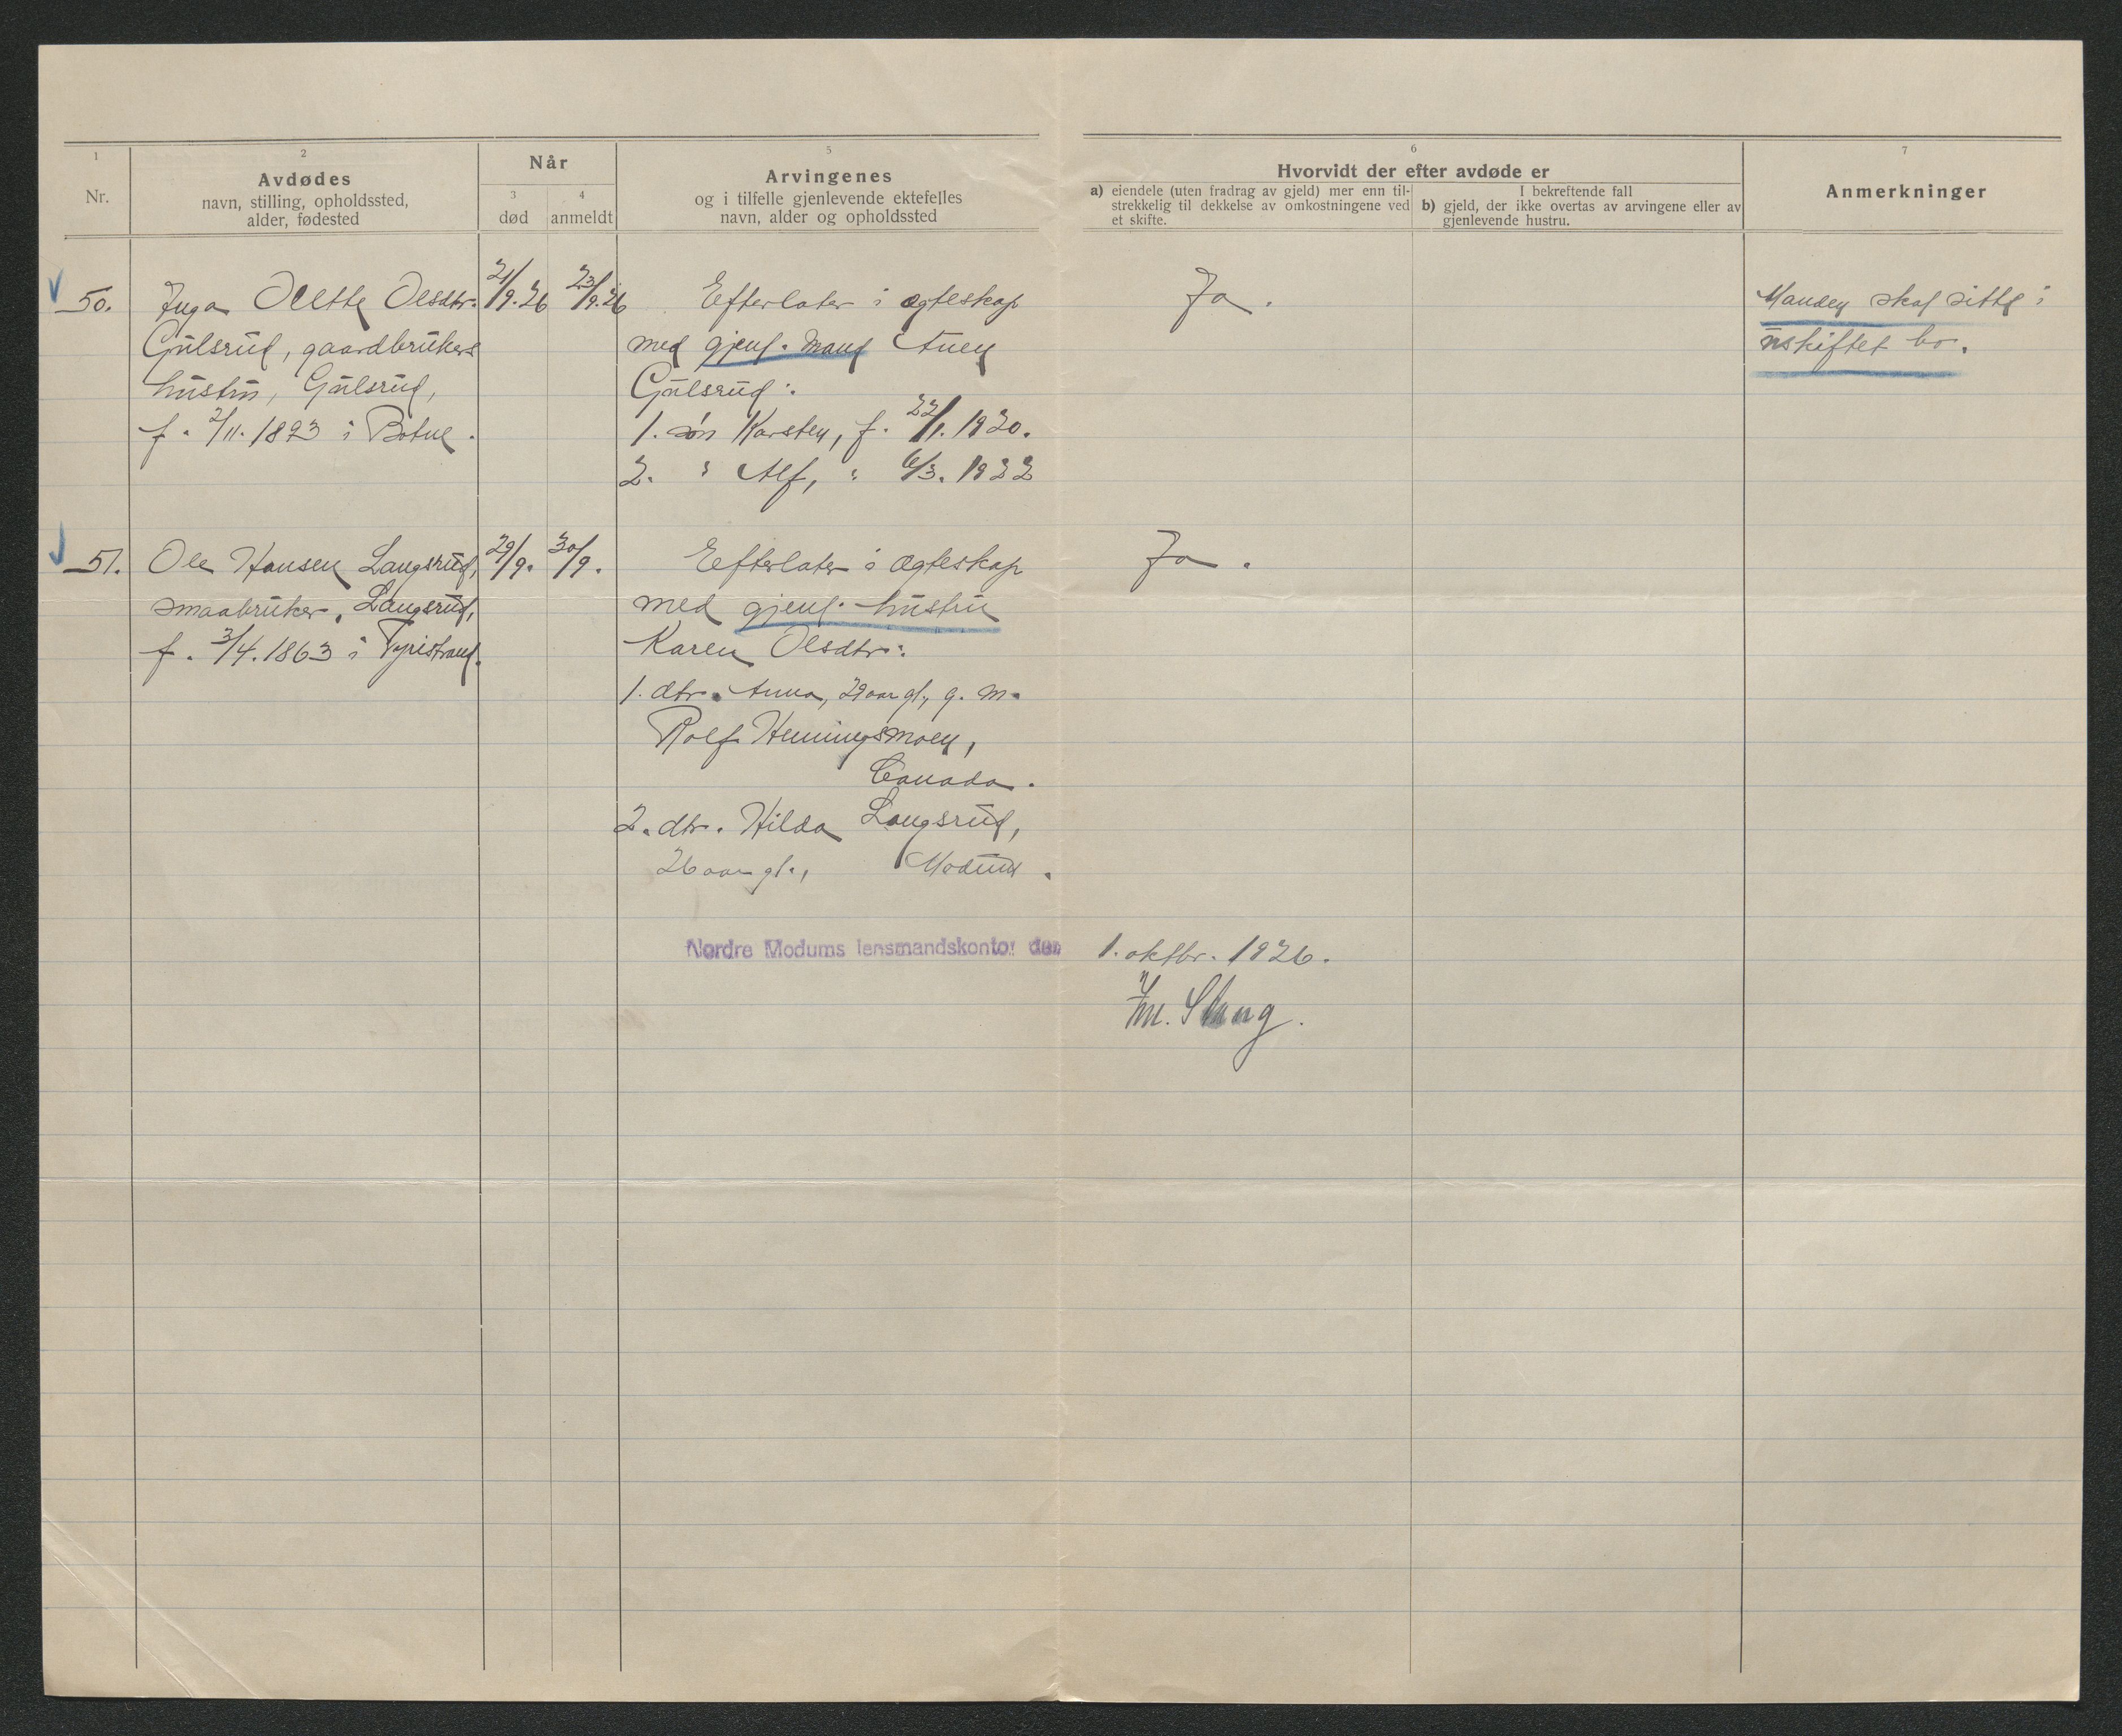 1
Nr.
2
Avdødes
navn, stilling, opholdssted,
alder, fødested
Når
3
død
4
anmeldt
5
Arvingenes
og i tilfelle gjenlevende ektefelles
navn, alder og opholdssted
6
Hvorvidt der efter avdøde er
a) eiendele (uten fradrag av gjeld) mer enn til-
strekkelig til dekkelse av omkostningene ved
et skifte.
I bekreftende fall
b) gjeld, der ikke overtas av arvingene eller av
gjenlevende hustru.
7
Anmerkninger
50.
Inga Olette Olsdtr.
Gulsrud, gaardbrukers
hustru, Gulsrud,
f. 2/11. 1893 i Botne.
21/9.26
23/9.26
Efterlater i ægteskap
med gjenl. mand Auen
Gulsrud:
1. søn Karsten, f. 22/1. 1920.
2. " Alf, " 6/3. 1922
Ja.
Manden skal sitte i
uskiftet bo.
51.
Ole Hansen Langsrud,
smaabruker, Langsrud,
f. 3/4. 1863 i Tyristrand.
29/9.
30/9.
Eefterlater i ægteskap
med gjenl. hustru
Karen Olsdtr.:
1. dtr. Anna, 29 aar gl., g. m.
Rolf Henningsmoen,
Canada.
2. dtr. Hilda Langsrud,
26 aar gl., Modum.
Ja.
Nordre Modums lensmandskontor den 1. oktbr. 1926.
Slang.